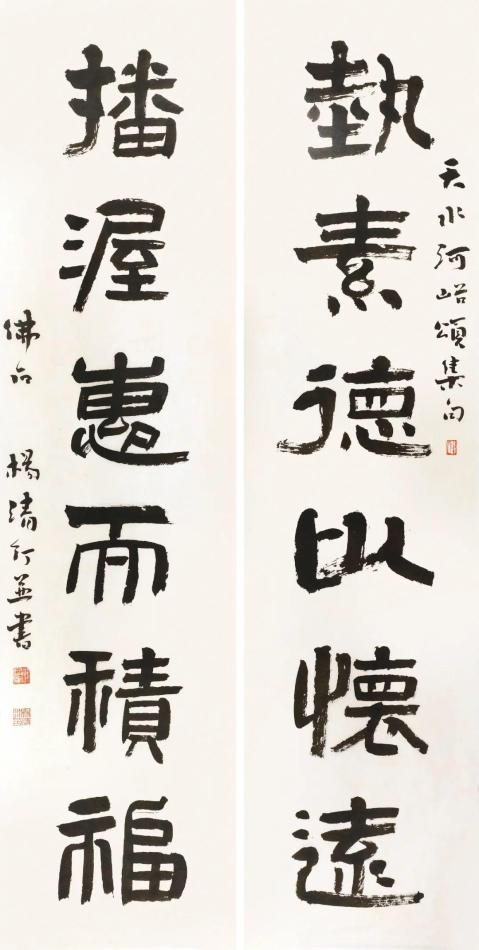 天水河峪頌集句
執素德以懷遠
播渥惠而積福
佛石 楊清汀並書